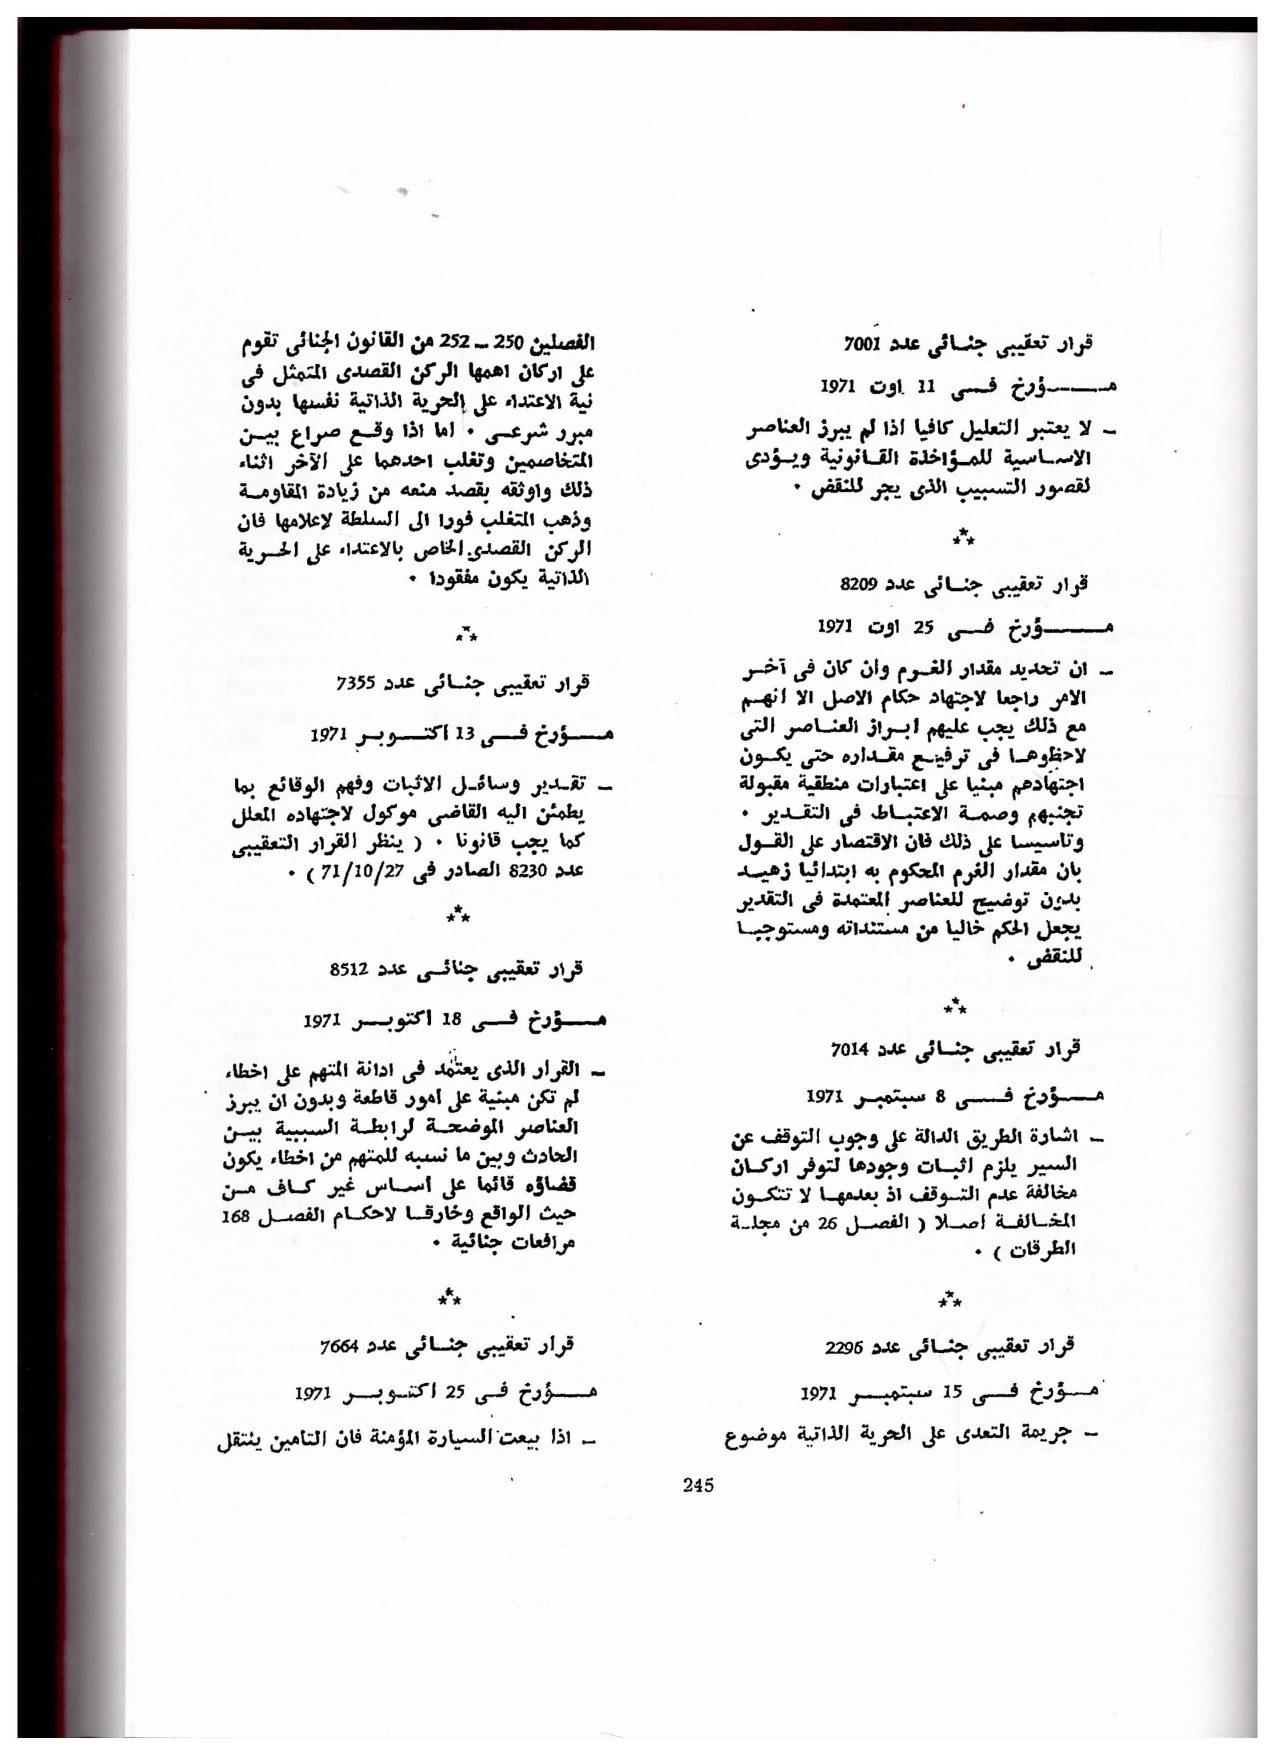 قرار تعقيبى جنــائى عدد 7001
مـــــــؤرخ فـــى 11 اوت 1971
ـ لا يعتبر التعليل كافيا اذا لم يبرز العناصر
الاســاسية للمــؤاخذة القــانونية ويــؤدى
لقصور التسبيب الذى يجر للنقض ٠
***
قرار تعقيبى جنــائى عدد 8209
مـــــــؤرخ فـــى 25 اوت 1971
ـ ان تحديد مقدار الغــرم وان كان فى آخــر
الامر راجعا لاجتهاد حكام الاصل الا انهــم
مع ذلك يجب عليهم ابــراز العنــاصر التى
لاحظوهــا فى ترفيــع مقــداره حتى يكــون
اجتهادهم مبنيا على اعتبارات منطقية مقبولة
تجنبهم وصمــة الاعتبــاط فى التقــدير ٠
وتاسيسا على ذلك فان الاقتصار على القــول
بان مقدار الغرم المحكوم به ابتدائيا زهيــد
بدون توضيح للعناصر المعتمدة فى التقدير
يجعل الحكم خاليا من مستنداته ومستوجبــا
للنقض ٠
***
قرار تعقيبى جنــائى عدد 7014
مـــــؤرخ فـــى 8 سبتمبــر 1971
ـ اشارة الطريق الدالة على وجوب التوقف عن
السير يلزم اثبــات وجودها لتوفر اركــان
مخالفة عدم التــوقف اذ بعدمهــا لا تتكــون
المخــالفــة اصــلا ( الفصــل 26 من مجلــة
الطرقات ) ٠
***
قرار تعقيبى جنــائى عدد 2296
مــؤرخ فـــى 15 سبتمبــر 1971
ـ جريمة التعدى على الحرية الذاتية موضوع
الفصلين 250 ــ 252 من القانون الجنائى تقوم
على اركان اهمها الركن القصدى المتمثل فى
نية الاعتداء على الحرية الذاتية نفسها بدون
مبرر شرعــى ٠ اما اذا وقــع صراع بيــن
المتخاصمين وتغلب احدهما على الآخر اثناء
ذلك واوثقه بقصد منعه من زيادة المقاومــة
وذهب المتغلب فورا الى السلطة لاعلامها فان
الركن القصدى الخاص بالاعتداء على الحــرية
الذاتية يكون مفقودا ٠
***
قرار تعقيبى جنــائى عدد 7355
مــــؤرخ فـــى 13 اكتــــوبــر 1971
ـ تقــدير وسائــل الاثبات وفهم الوقائع بما
يطمئن اليه القاضى موكول لاجتهاده المعلل
كما يجب قانونا ٠ ( ينظر القرار التعقيبى
عدد 8230 الصادر فى 71/10/27 ) ٠
***
قرار تعقيبى جنائــى عدد 8512
مــــؤرخ فـــى 18 اكتوبـــر 1971
ـ القرار الذى يعتمد فى ادانة المتهم على اخطاء
لم تكن مبنية على امور قاطعة وبدون ان يبرز
العناصر الموضحــة لرابطــة السببية بيــن
الحادث وبين ما نسبه للمتهم من اخطاء يكون
قضاؤه قائما على أســاس غير كــاف مــن
حيث الواقع وخارقــا لاحكــام الفصــل 168
مرافعات جنائية ٠
***
قرار تعقيبى جنــائى عدد 7664
مــــؤرخ فــى 25 اكتــوبــر 1971
ـ اذا بيعت السيارة المؤمنة فان التامين ينتقل
245